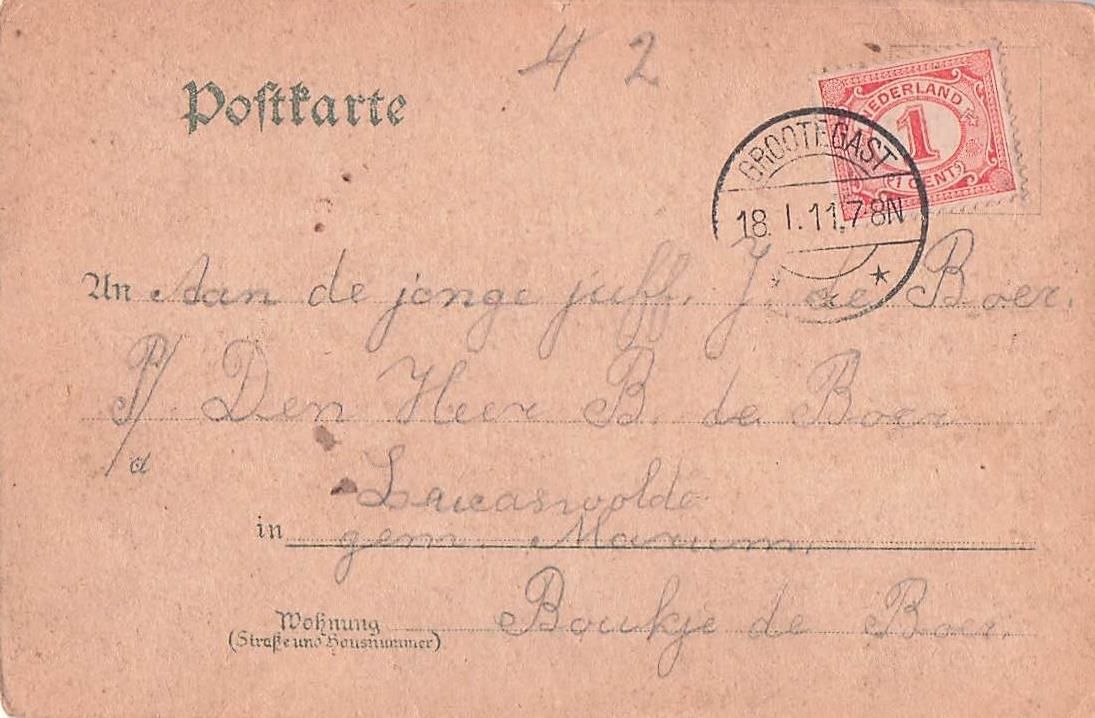 42
Postkarte
NEDERLAND
1
(1 CENT)
GROOTEGAST
18.I.11.7-8N
An Aan de jonge juff. J. de Boer.
P/a Den Heer B. de Boer
Lucaswolde
in gem. Marum.
Wohnung Boukje de Boer.
(Straße und Hausnummer)